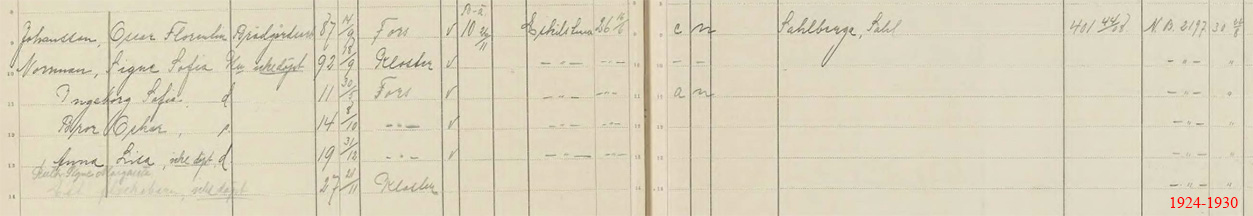 Johansson, Oscar Florentin 87 14/9 Fors v 10 Eskilstuna 26 c n Sahlberga, Sahl 401 N. B. 2197 30
Norrman, Signe Sofia Hu icke döpt 92 18/9 Kloster v -"- -"- - - -"- "
Ingeborg Sofia, d 11 30/5 Fors v -"- -"- a n -"- "
Bror Oskar, s. 14 8/10 -"- v -"- -"- -"- "
Anna Lisa, icke döpt, d 19 31/12 -"- v -"- -"- -"- "
Signe Margareta
icke döpt 27 21/11 Kloster -"- "
1924-1930